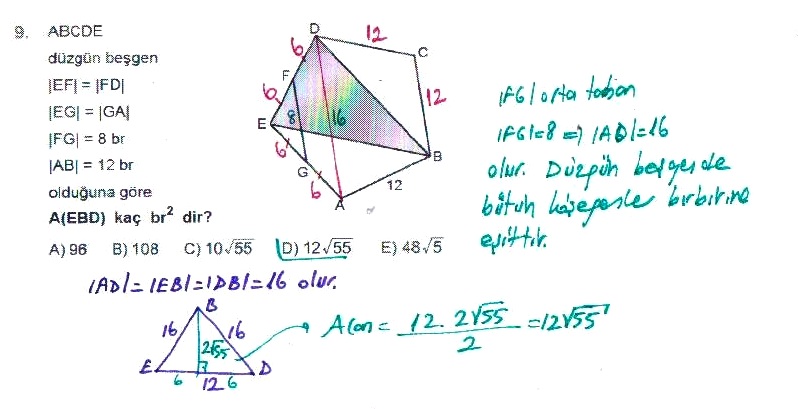 9. ABCDE
düzgün beşgen
|EF| = |FD|
|EG| = |GA|
|FG| = 8 br
|AB| = 12 br
olduğuna göre
A(EBD) kaç br² dir?
A) 96 B) 108 C) 10√55 D) 12√55 E) 48√5
D
12
C
6
F
6
12
8
16
E
6
B
G
6
12
A
|FG| orta taban
|FG|=8 => |AD|=16
olur. Düzgün beşgende
bütün köşegenler birbirine
eşittir.
|AD|=|EB|=|DB|=16 olur.
B
16
16
2√55
E
D
6
12
6
Alan = 12.2√55 / 2 = 12√55